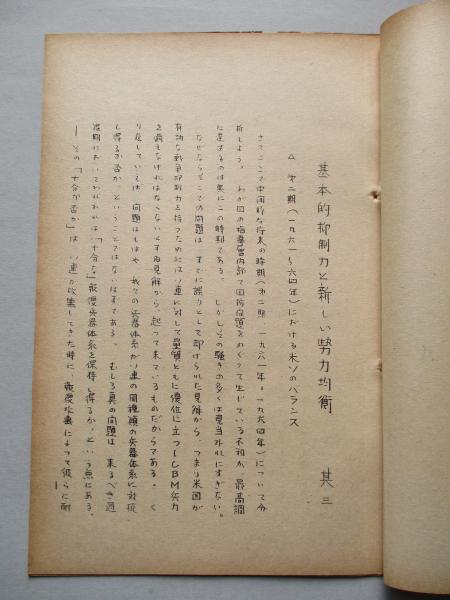 基本的抑制力と新しい勢力均衡 其三
△ 第二期(一九六一〜六四年)における米ソのバランス
さてここで中間的な将来の時期(第二期、一九六一年〜一九六四年)について分
析しよう。わが国の指導層内部で国防問題をめぐって生じている不和が、最高調
に達するのは実にこの時期である。しかしその騒ぎの多くは見当外れにすぎない。
なぜならそこでの問題は、すでに誤りとして斥けられた見解から、つまり米国が
有効な戦争抑制力を持つためにはソ連に対して量質ともに優位に立つICBM兵力
を備えなければならないとする見解から、起って来ているものだからである。く
り返していえば、問題はもはや、我々の兵器体系がソ連の同種類の兵器体系に対抗
し得るか否か、ということではないはずである。むしろ真の問題は、来るべき過
渡期においてわれわれは「十分な」報復兵器体系を保持し得るか、という点にある。
―その「十分か否か」は、ソ連が攻撃してきた時に、報復攻撃によって彼らに耐